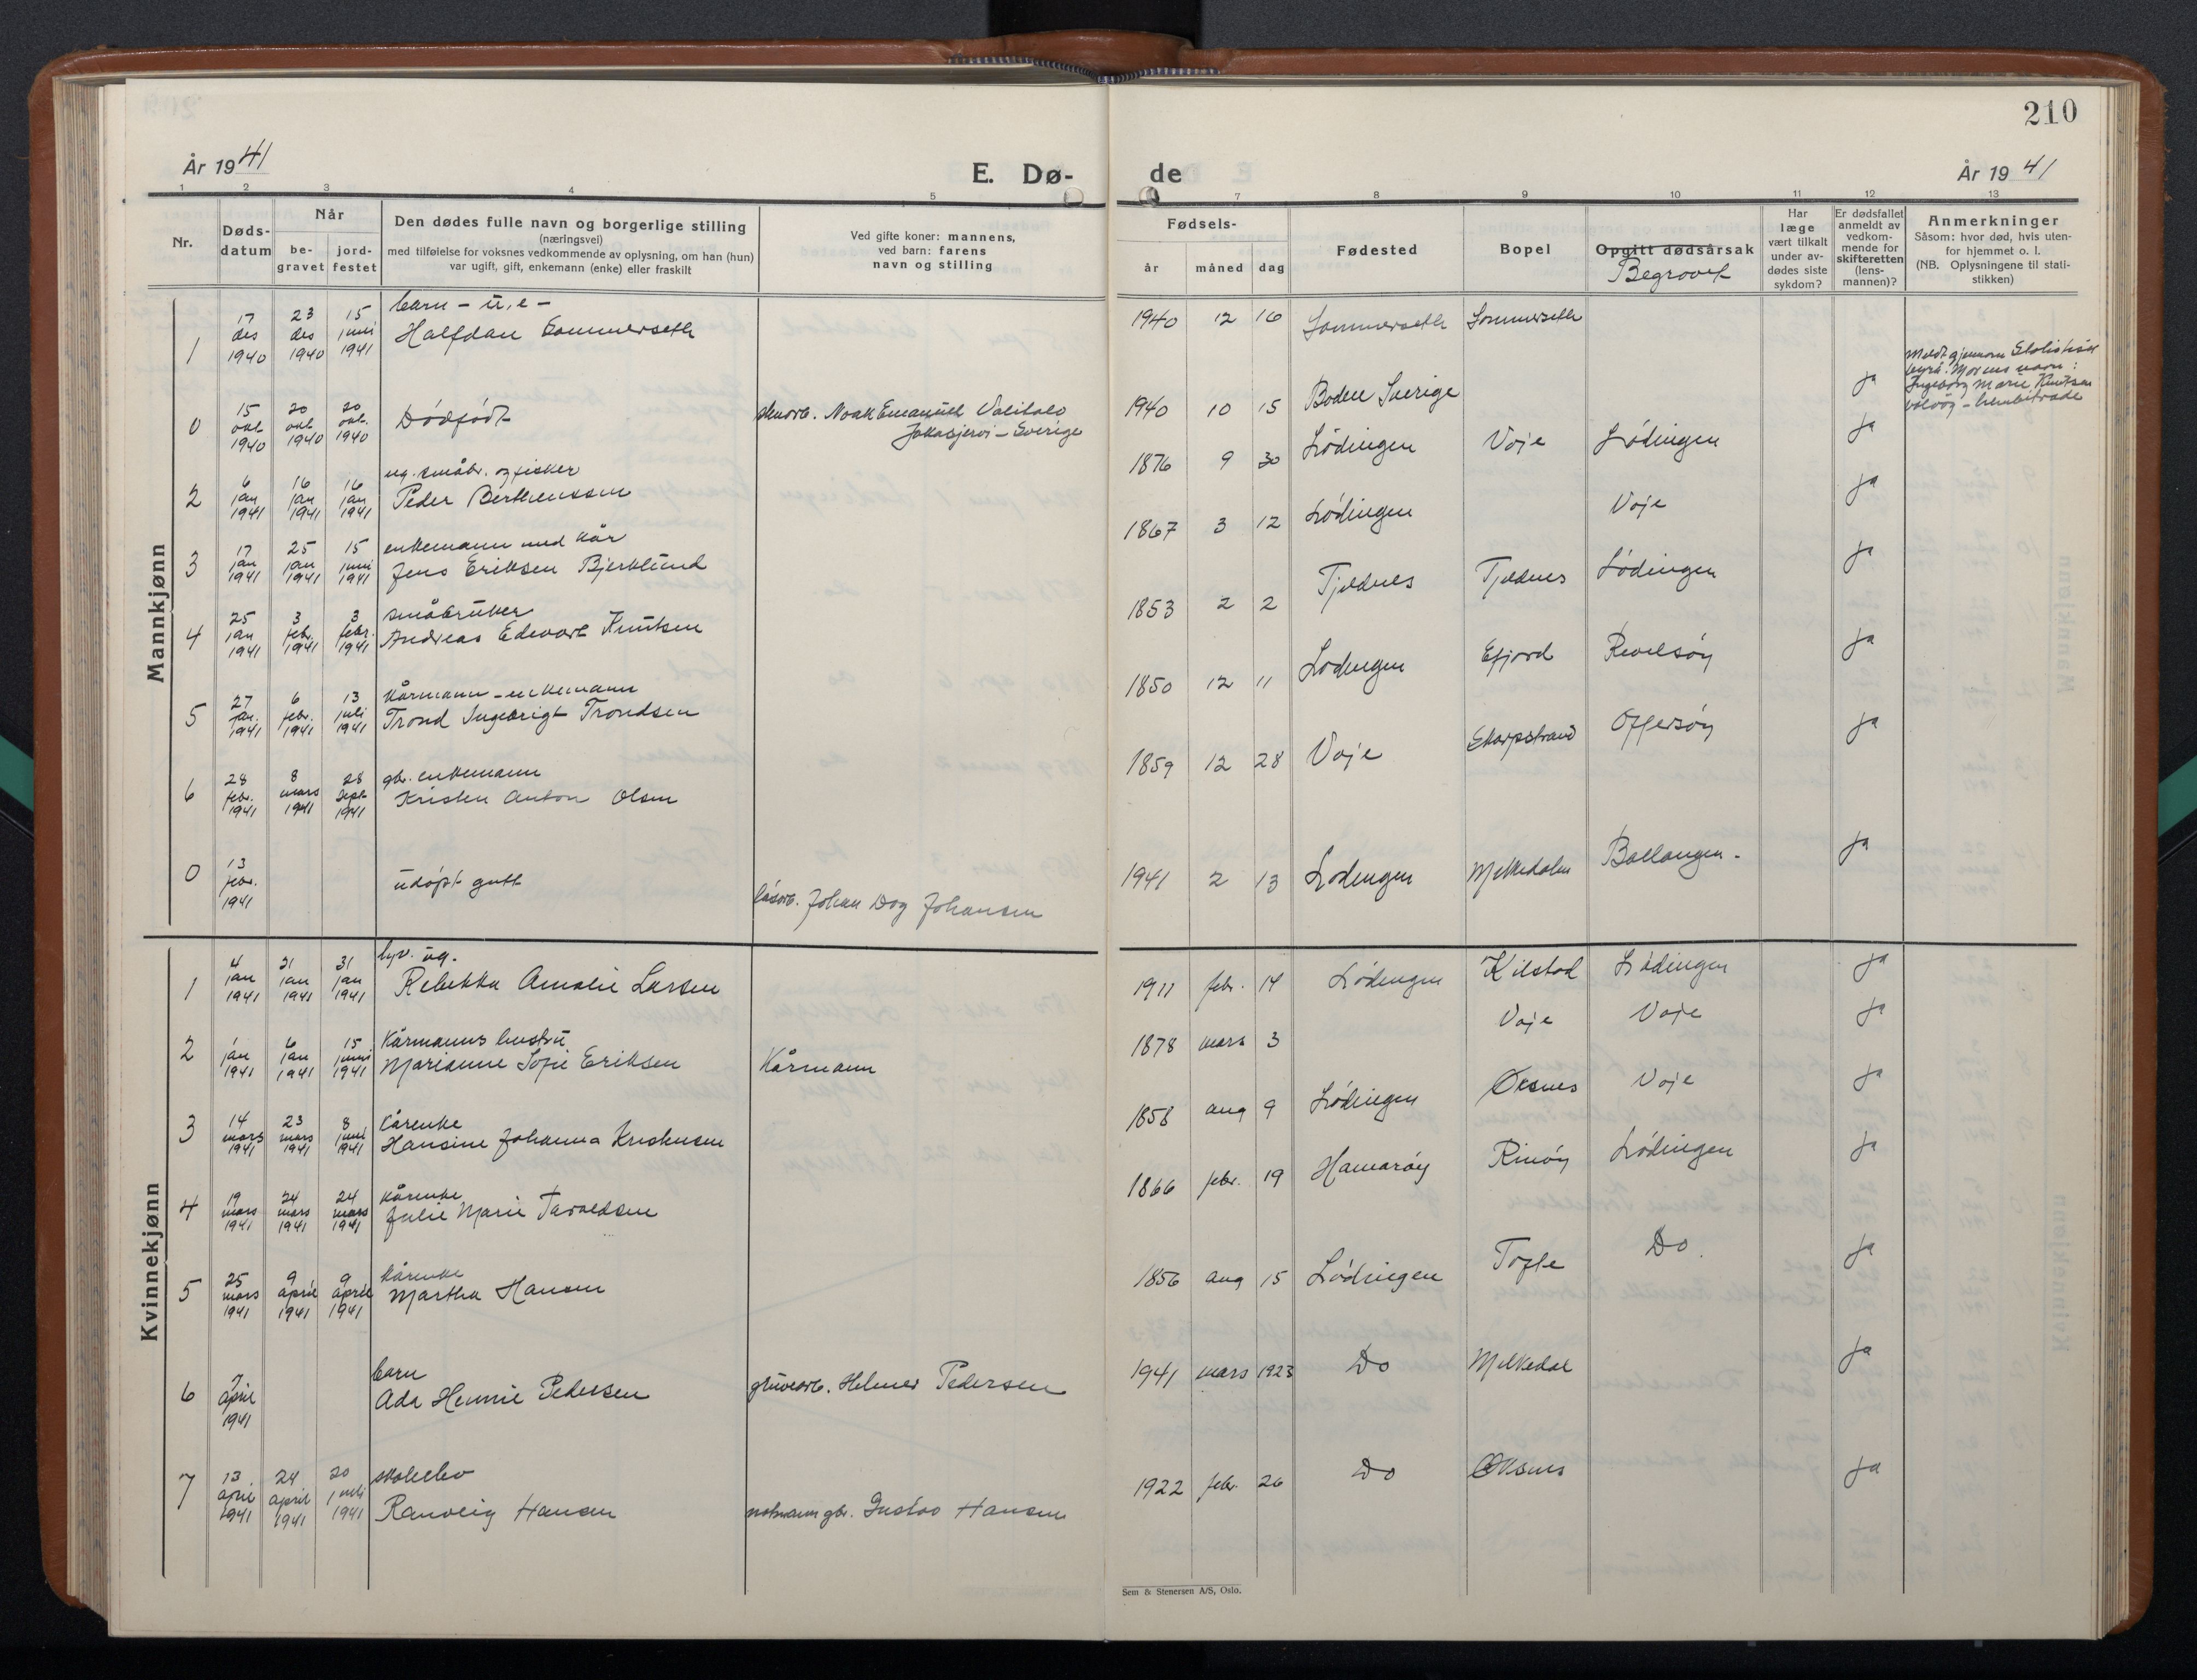 210
År 1941
E. Dø-
de
År 1941
1 2 3 4 5 7 8 9 10 11 12 13
Nr.
Døds-
datum
Når
be-
gravet
jord-
festet
Den dødes fulle navn og borgerlige stilling
(næringsvei)
med tilføielse for voksnes vedkommende av oplysning, om han (hun)
var ugift, gift, enkemann (enke) eller fraskilt
Ved gifte koner: mannens,
ved barn: farens
navn og stilling
Fødsels-
år måned dag
Fødested
Bopel
Opgitt dødsårsak
Begravet
Har
læge
vært tilkalt
under av-
dødes siste
sykdom?
Er dødsfallet
anmeldt av
vedkom-
mende for
skifteretten
(lens-
mannen)?
Anmerkninger
Såsom: hvor død, hvis uten-
for hjemmet o. l.
(NB. Oplysningene til stati-
stikken)
Mannkjønn
barn - u.e -
1 17 des 1940 23 des 1940 15 juni 1941 Halfdan Sommerseth 1940 12 16 Sommerseth Sommerseth
0 15 okt 1940 20 okt 1940 20 okt. 1940 Dødfødt Noak Emanuel 1940 10 15 Boden Sverige ja
Sverige
Meldt gjennom Statistisk
byrå. Morens navn:
Ingeborg Marie Knutsen
ug. småbr. og fisker
2 6 jan 1941 16 jan 1941 16 jan 1941 Peder Berthenssen 1876 9 30 Lødingen Voje Lødingen ja
enkemann med kår
3 17 jan 1941 25 jan 1941 15 juni 1941 Jens Eriksen Bjerklund 1867 3 12 Lødingen Voje ja
småbruker
4 25 jan 1941 3 febr. 1941 3 febr. 1941 Andreas Edvart Knutsen 1853 2 2 Tjeldnes Tjeldnes Lødingen ja
Kårmann - enkemann
5 27 jan. 1941 6 febr. 1941 13 juli 1941 Trond Ingebrigt Trondsen 1850 12 11 Lødingen Efjord Revelsøy ja
gbr. enkemann
6 28 febr. 1941 8 mars 1941 28 sept 1941 Kristen Anton Olsen 1859 12 28 Voje Skarpstrand Offersøy ja
0 13 febr. 1941 udøpt gutt Johan Dag Johansen 1941 2 13 Lødingen Melkedalen Ballangen - ja
Kvinnekjønn
ug.
1 4 jan 1941 21 jan 1941 31 jan 1941 Rebekka Amalie Larsen 1911 febr. 14 Lødingen Kilstad Lødingen ja
Kårmanns hustru
2 1 jan 1941 6 jan 1941 15 juni 1941 Marianne Sofie Eriksen Kårmann 1878 mars 3 Voje Voje ja
Kårenke
3 14 mars 1941 23 mars 1941 8 juni 1941 Hansine Johanna Kristensen 1858 aug 9 Lødingen Øksnes Voje ja
Kårenke
4 19 mars 1941 24 mars 1941 24 mars 1941 Julie Marie Tavaldsen 1866 febr. 19 Hamarøy Rinøy Lødingen ja
Kårenke
5 25 mars 1941 9 april 1941 9 april 1941 Martha Hansen 1856 aug 15 Lødingen Tofte Do. ja
barn
6 7 april 1941 Ada Hennie Pedersen gruvearb. Helmer Pedersen 1941 mars 1923 Do Melkedal ja
skoleelev
7 13 april 1941 24 april 1941 20 juli 1941 Ranveig Hansen gbr. Gustav Hansen 1922 febr. 26 Do Øksnes ja
Sem & Stenersen A/S, Oslo.